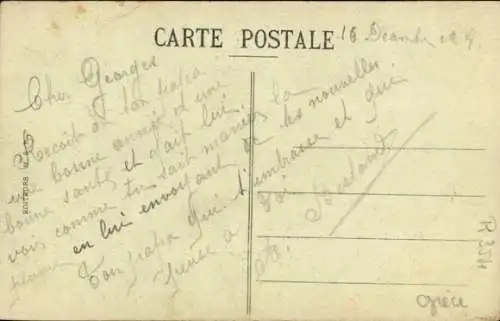 CARTE POSTALE
16 Décembre 19
Cher Georges
Reçoit de ton papa
une bonne année et une
bonne santé et dait lui
vois comme tu sait maman la
en lui envoyant de tes nouvelles
Ton papa qui t'embrasse et qui
pense a toi
EDITEURS
R 354
Grèce